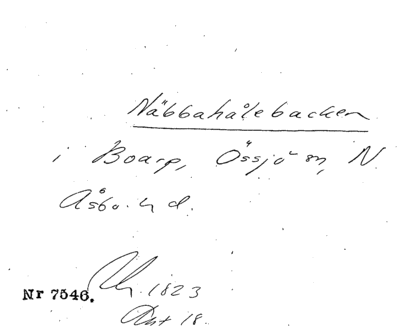 Näbbahålebacken
i Boarp, Össjö sn, N
Åsbo hd.
Nr 7546. 1823
Akt 18.